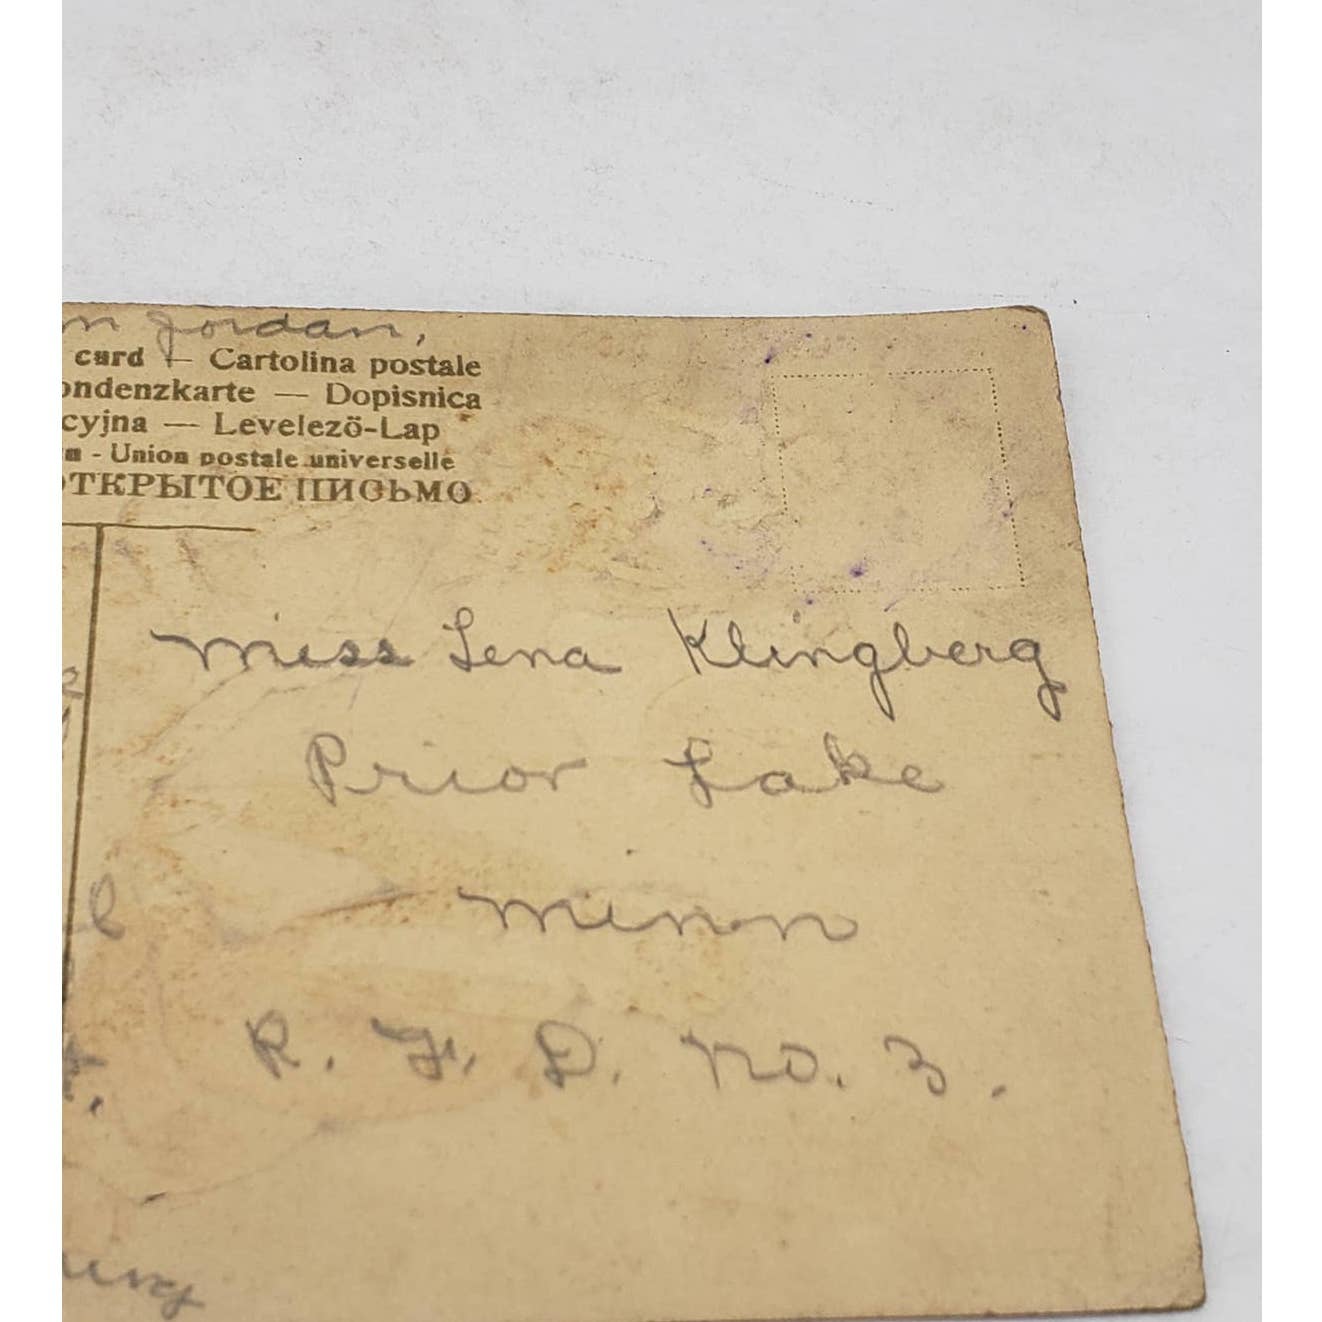 n Jordan,
card — Cartolina postale
ondenzkarte — Dopisnica
cyjna — Levelezö-Lap
n - Union postale universelle
ОТКРЫТОЕ ПИСЬМО
Miss Lena Klingberg
Prior Lake
Minn
R. F. D. No. 3.